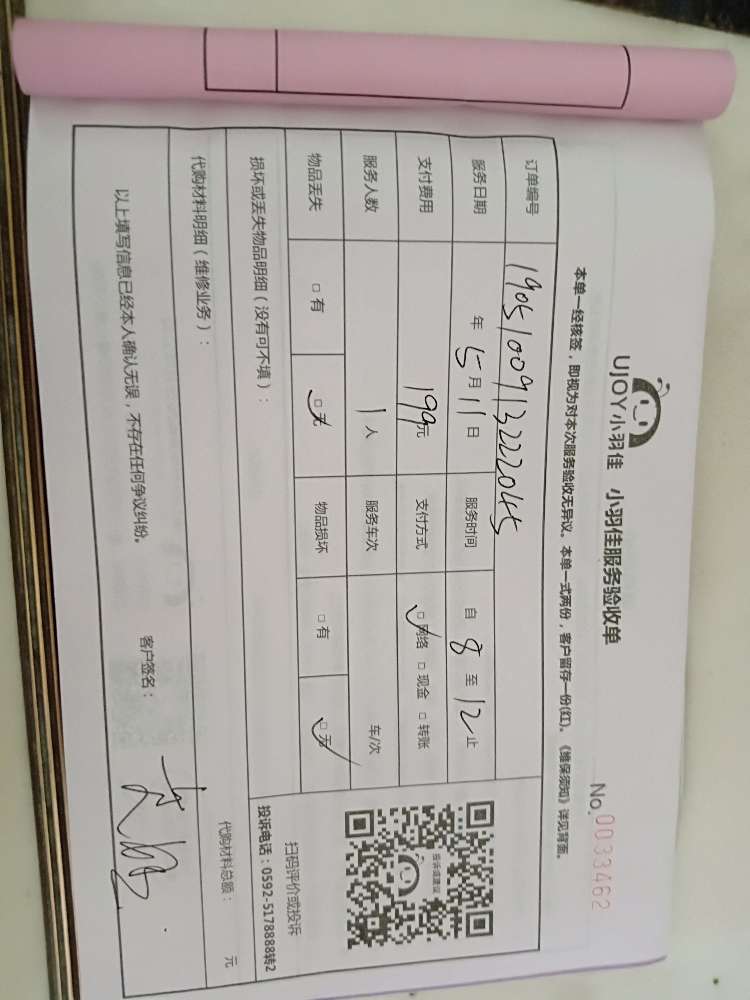 UJOY小羽佳 小羽佳服务验收单
No.0033462
本单一经核签，即视为对本次服务验收无异议。本单一式两份，客户留存一份(红)。《维保须知》详见背面。
订单编号 1905100913222045
服务日期 年 5月11日 服务时间 自 8 至 12 止
支付费用 199元 支付方式 □网络 □现金 □转账
服务人数 1人 服务车次 车/次
物品丢失 □有 □无 物品损坏 □有 □无
投诉或建议
扫码评价或投诉
投诉电话：0592-5178888转2
损坏或丢失物品明细（没有可不填）：
代购材料明细（维修业务）： 代购材料总额： 元
以上填写信息已经本人确认无误，不存在任何争议纠纷。
客户签名：